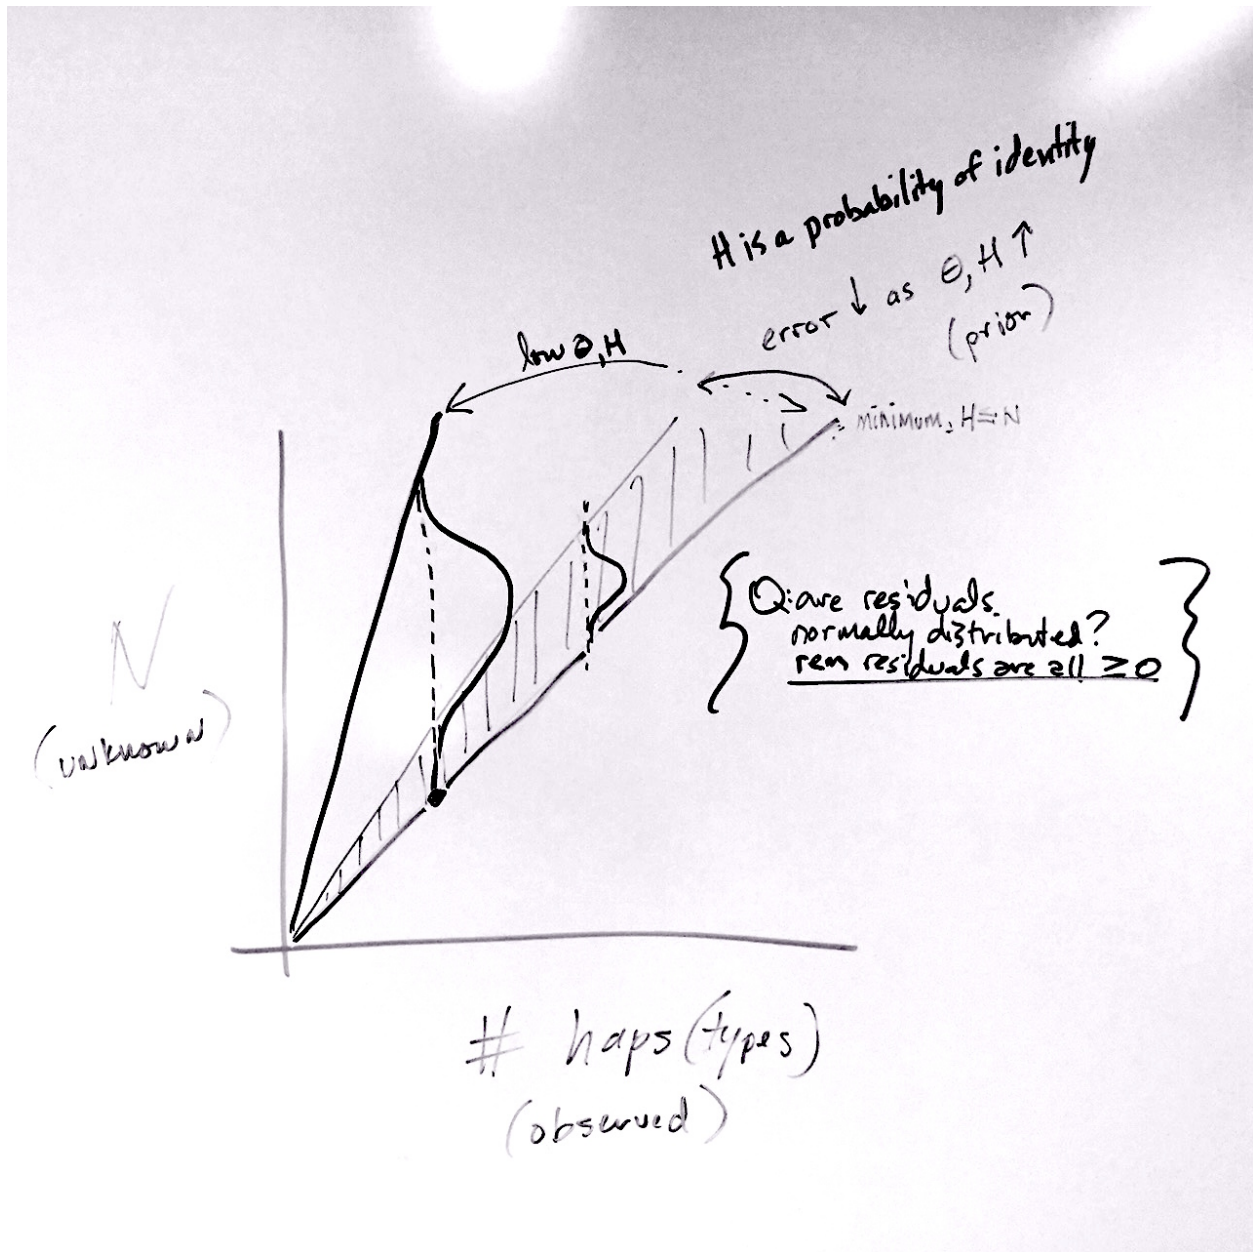 H is a probability of identity
error ↓ as Θ, H ↑
(prior)
low Θ, H
minimum, H=N
Q: are residuals
normally distributed?
rem residuals are all ≥ 0
N
(unknown)
# haps (types)
(observed)